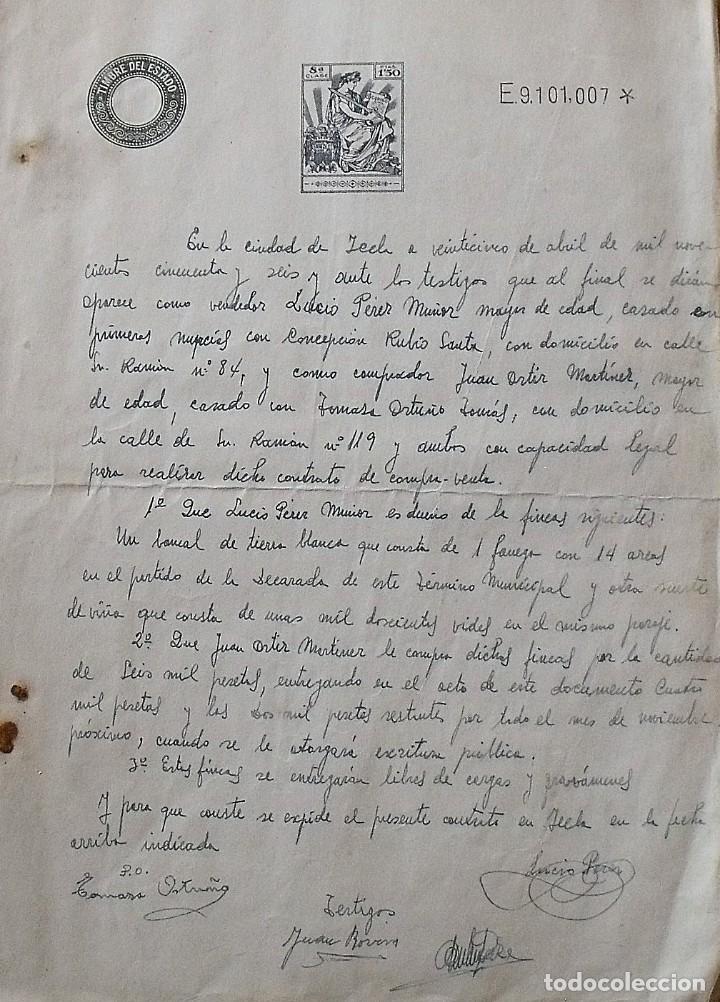 TIMBRE DEL ESTADO
8ª CLASE
PTAS. 1'50
E.9.101.007 *
En la ciudad de Yecla a veinticinco de abril de mil nove-
cientos cincuenta y seis y ante los testigos que al final se dirán
aparece como vendedor Lucio Pérez Muñoz mayor de edad, casado en
primeras nupcias con Concepción Rubio Santa, con domicilio en calle
Sn. Ramón nº 84, y como comprador Juan Ortiz Martínez, mayor
de edad, casado con Tomasa Ortuño Tomás, con domicilio en
la calle de Sn. Ramón nº 119 y ambos con capacidad legal
para realizar dicho contrato de compra-venta.
1º Que Lucio Pérez Muñoz es dueño de la fincas siguientes:
Un bancal de tierra blanca que consta de 1 fanega con 14 areas
en el partido de la Decarada de este Término Municipal y otra suerte
de viña que consta de unas mil doscientas vides en el mismo paraje.
2º Que Juan Ortiz Martínez le compra dichas fincas por la cantidad
de Seis mil pesetas, entregando en el acto de este documento Cuatro
mil pesetas y las Dos mil pesetas restantes por todo el mes de noviembre
próximo, cuando se le otorgará escritura pública.
3º Estas fincas se entregarán libres de cargas y gravámenes
Y para que conste se expide el presente contrato en Yecla en la fecha
arriba indicada
P.O.
Tomasa Ortuño
Lucio Perez
Testigos
Juan Rovira
todocoleccion.net